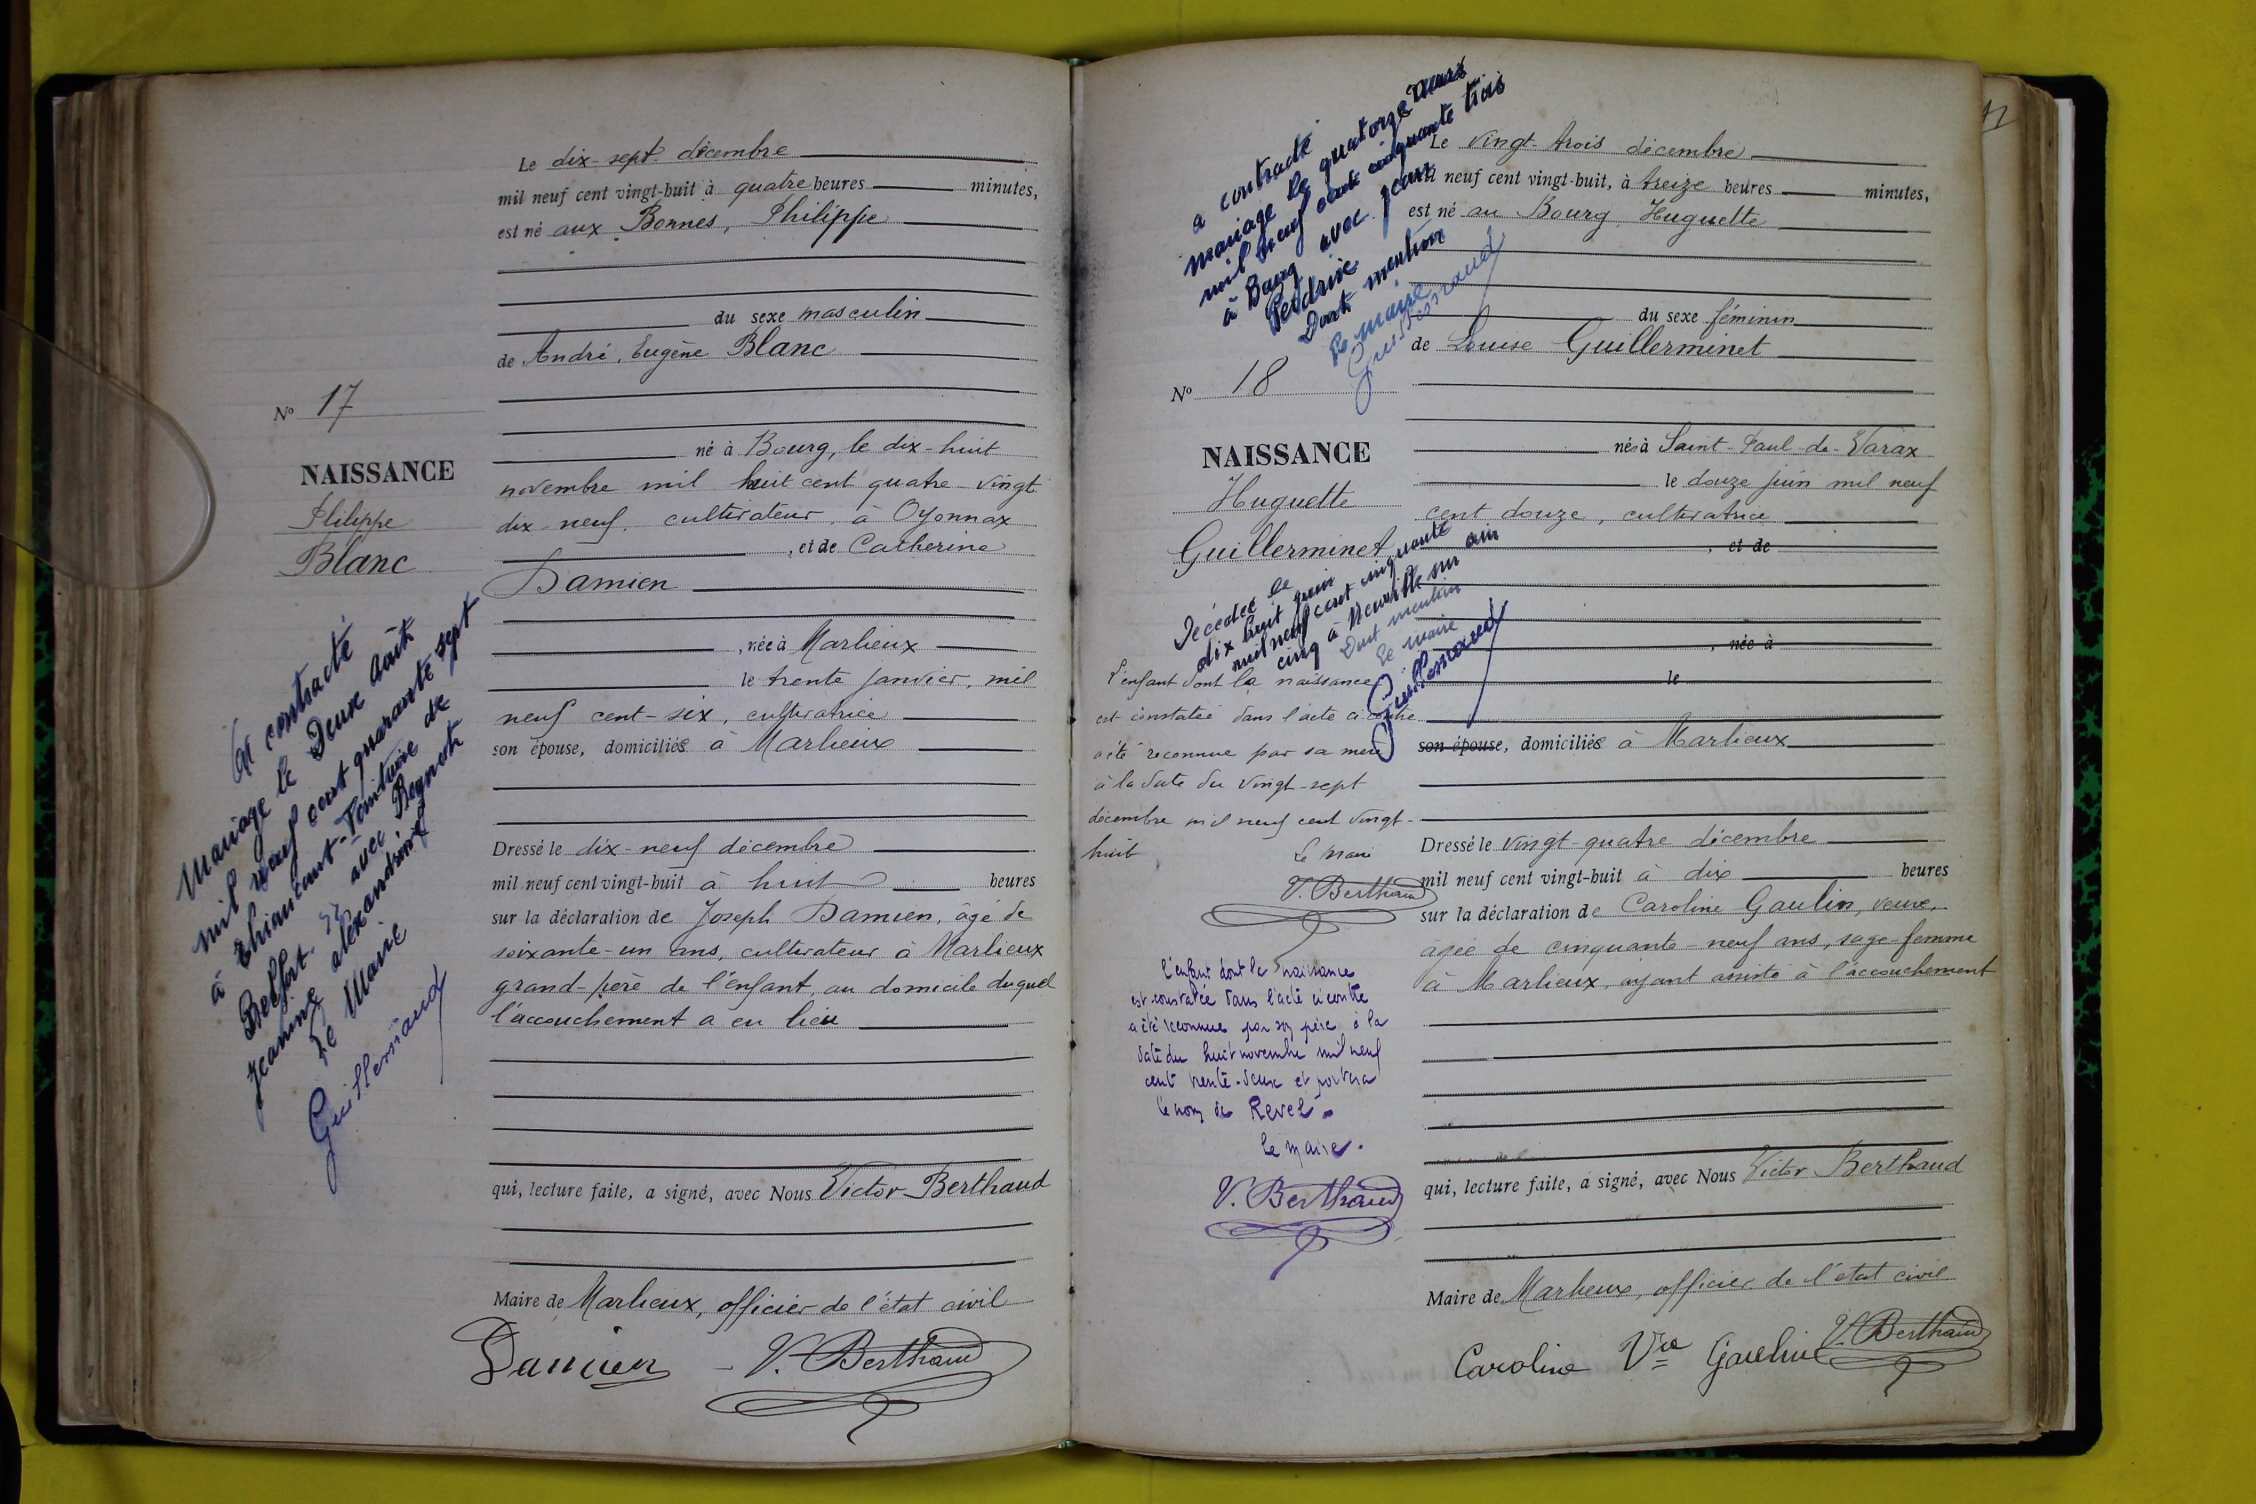 Nº 17
NAISSANCE
Philippe
Blanc
A contracté
mariage le Deux Août
mil neuf cent quarante sept
à
Belfort avec
Jeanne alexandrine
Le Maire
Guillemaud
Le dix-sept décembre
mil neuf cent vingt-huit à quatre heures minutes,
est né aux Bonnes, Philippe
du sexe masculin
de André, Eugène Blanc
né à Bourg, le dix-huit
novembre mil huit cent quatre-vingt
dix-neuf, cultivateur à Oyonnax
, et de Catherine
Damien
, née à Marlieux
le trente janvier, mil
neuf cent-six, cultivatrice
son épouse, domiciliés à Marlieux
Dressé le dix-neuf décembre
mil neuf cent vingt-huit à huit heures
sur la déclaration de Joseph Damien, âgé de
soixante-un ans, cultivateur à Marlieux
grand-père de l'enfant, au domicile duquel
l'accouchement a eu lieu
qui, lecture faite, a signé, avec Nous Victor Berthaud
Maire de Marlieux, officier de l'état civil
Damien V. Berthaud
a contracté
mariage le quatorze Mars
mil neuf cent cinquante trois
à Bourg avec Jean
Perdrix
Dont mention
Le maire
Guillemaud
Nº 18
NAISSANCE
Huguette
Guillerminet
Décédée le
dix huit juin
mil neuf cent cinquante
cinq à Neuville sur ain
Dont mention
Le maire
Guillemaud
L'enfant dont la naissance
est constatée dans l'acte ci contre
a été reconnue par sa mère
à la date du vingt-sept
décembre mil neuf cent vingt-
huit
Le Maire
V. Berthaud
L'enfant dont la naissance
est constatée dans l'acte ci contre
a été reconnue par son père à la
date du huit novembre mil neuf
cent trente-deux et portera
le nom de Revel.
Le Maire.
V. Berthaud
Le vingt-trois décembre
mil neuf cent vingt-huit, à treize heures minutes,
est né au Bourg, Huguette
du sexe féminin
de Louise Guillerminet
née à Saint-Paul-de-Varax
le douze juin mil neuf
cent douze, cultivatrice
, et de
, née à
le
son épouse, domiciliée à Marlieux
Dressé le vingt-quatre décembre
mil neuf cent vingt-huit à dix heures
sur la déclaration de Caroline Gaulin, veuve,
âgée de cinquante-neuf ans, sage-femme
à Marlieux, ayant assisté à l'accouchement
qui, lecture faite, a signé, avec Nous Victor Berthaud
Maire de Marlieux, officier de l'état civil
Caroline Vve Gaulin V. Berthaud